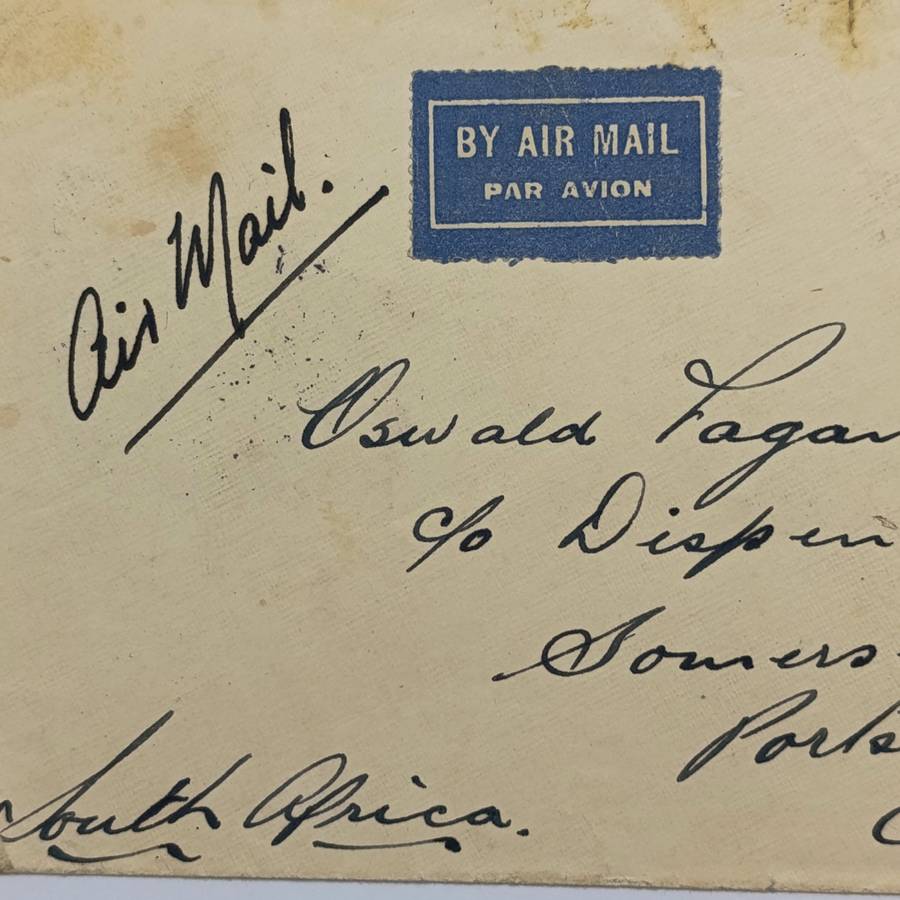 BY AIR MAIL
PAR AVION
Air Mail.
Oswald Fagan
c/o Dispen
Somers
Ports
South Africa.